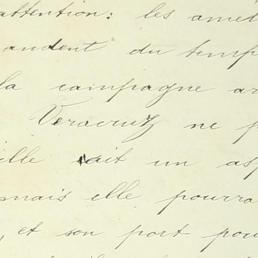 attention: les amé
andent du temp
la campagne a
Veracruz ne p
ille ait un as
mais elle pourra
, et son port pou